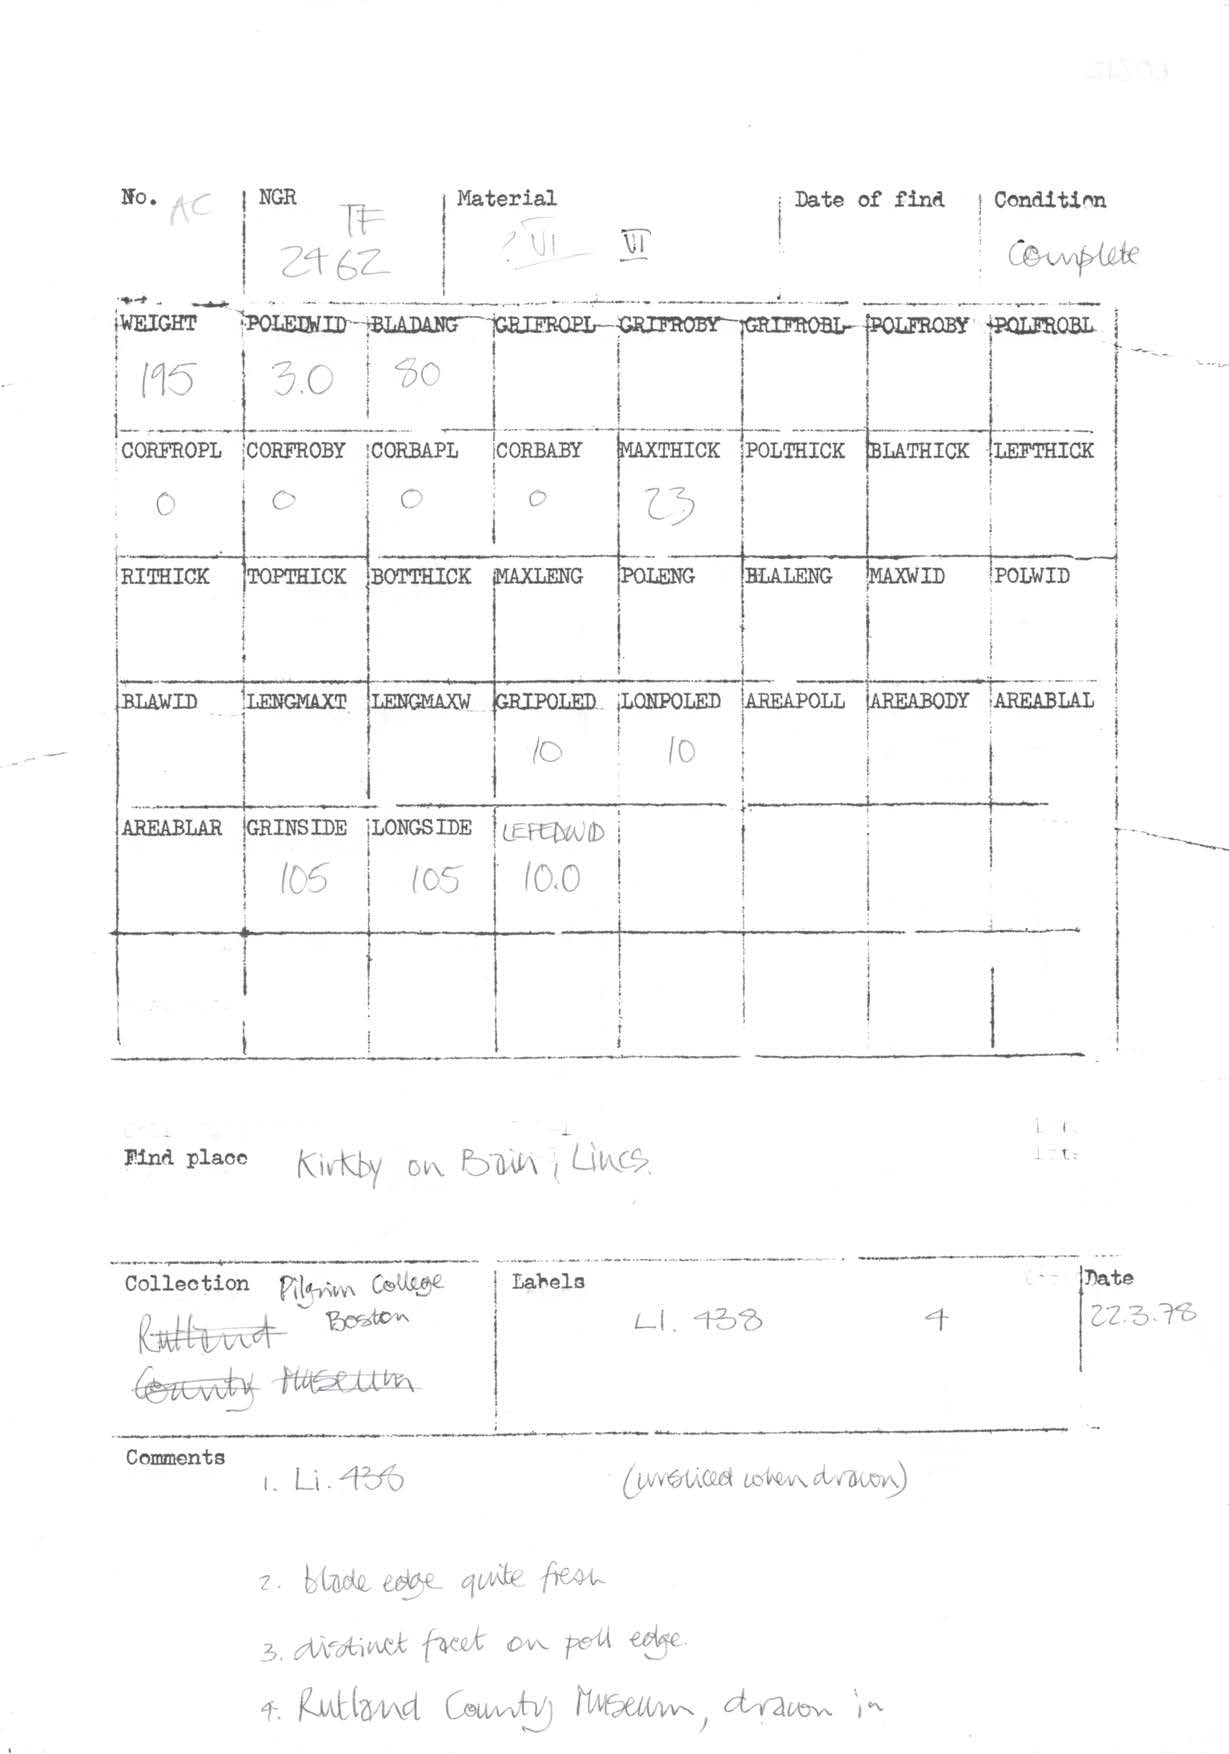 No. AC NGR TF 2462 Material ? VI VI Date of find Condition Complete
WEIGHT POLEDWID BLADANG GRIFROPL GRIFROBY GRIFROBL POLFROBY POLFROBL
195 3.0 80
CORFROPL CORFROBY CORBAPL CORBABY MAXTHICK POLTHICK BLATHICK LEFTHICK
0 0 0 0 23
RITHICK TOPTHICK BOTTHICK MAXLENG POLENG BLALENG MAXWID POLWID
BLAWID LENGMAXT LENGMAXW GRIPOLED LONPOLED AREAPOLL AREABODY AREABLAL
10 10
AREABLAR GRINSIDE LONGSIDE LEFEDWID
105 105 10.0
Find place Kirkby on Bain, Lincs.
Collection Pilgrim College
Boston
Rutland
County Museum
Labels
LI. 438 4
Date
22.3.78
Comments
1. Li. 438 (unsliced when drawn)
2. blade edge quite fresh
3. distinct facet on poll edge.
4. Rutland County Museum, drawn in